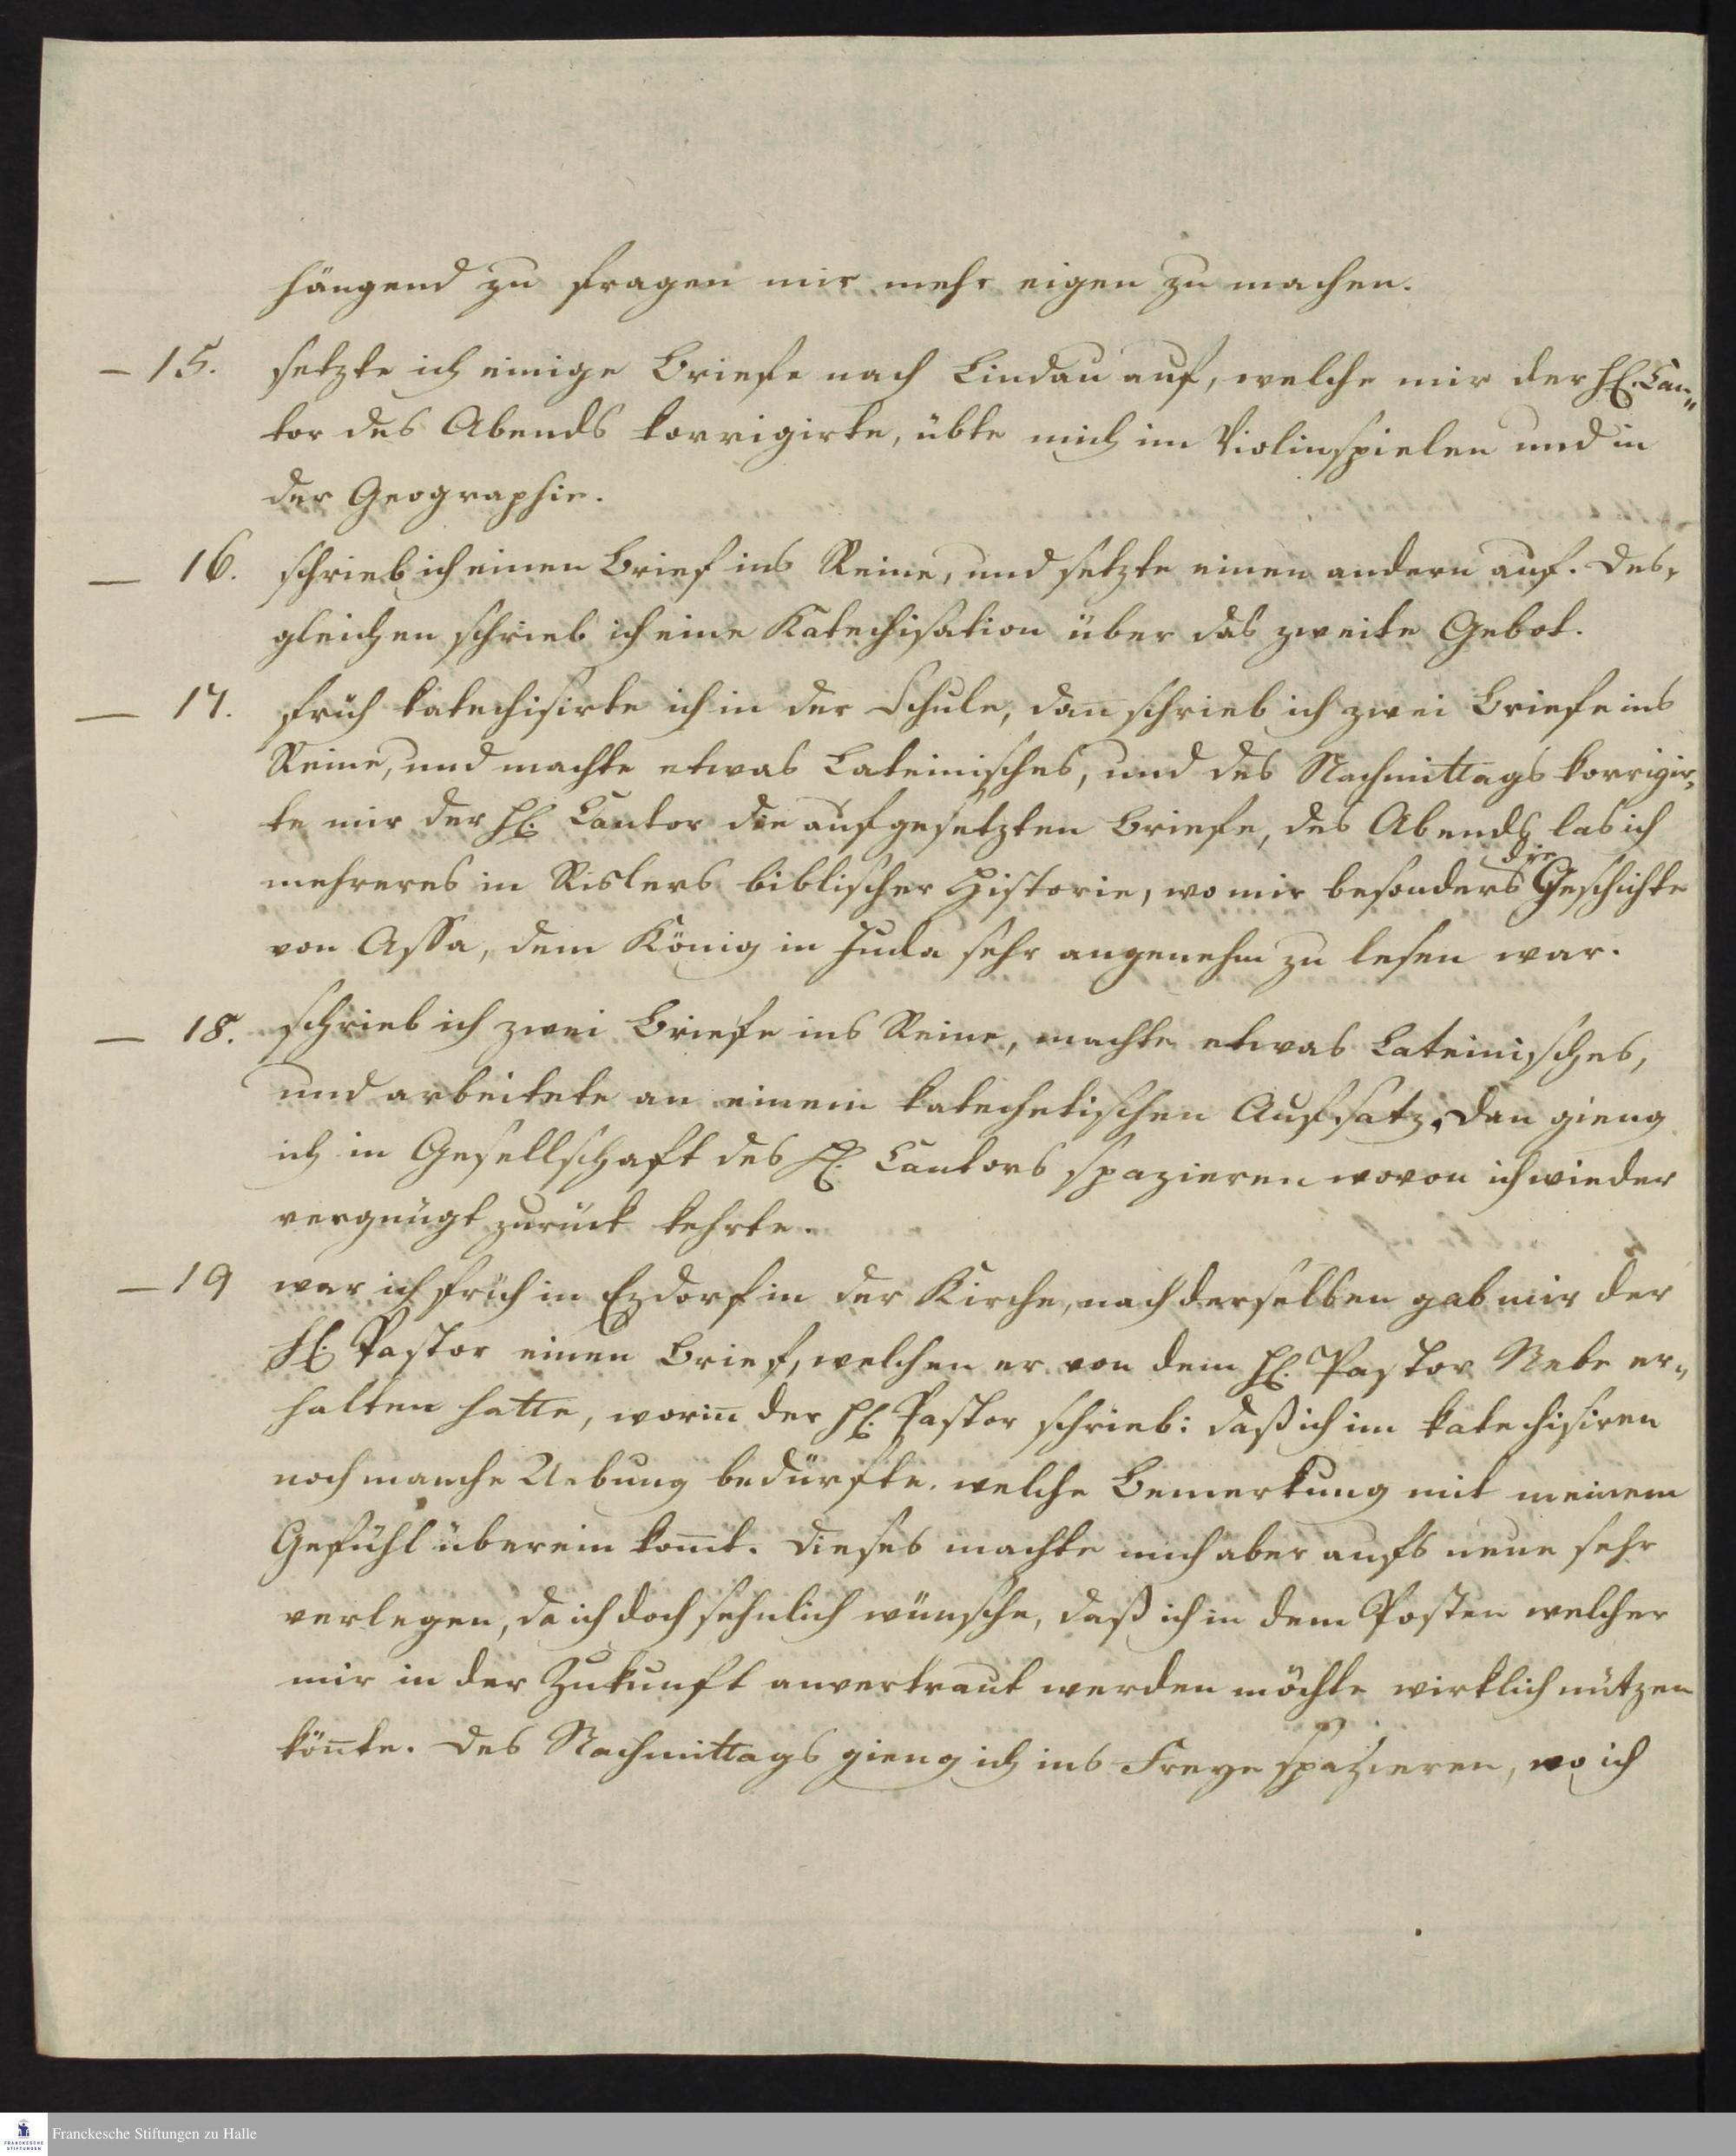 hängend zu fragen mir mehr eigen zu machen.
— 15. setzte ich einige Briefe nach Lindau auf, welche mir der H. Can„
tor des Abends korrigirte, übte mich im Violinspielen und in
der Geographie.
— 16. schrieb ich einen Brief ins Reine, und setzte einen andern auf. Des„
gleichen schrieb ich eine Katechisation über das zweite Gebot.
— 17. früh katechisirte ich in der Schule, dan̄ schrieb ich zwei Briefe ins
Reine, und machte etwas Lateinisches, und des Nachmittags korrigir„
te mir der H. Cantor die aufgesetzten Briefe, des Abends las ich
mehreres in Rislers biblischer Historie, wo mir besonders die Geschichte
von Assa, dem König in Juda sehr angenehm zu lesen war.
— 18. schrieb ich zwei Briefe ins Reine, machte etwas Lateinisches,
und arbeitete an einem katechetischen Aufsatz, dan gieng
ich in Gesellschaft des H. Cantors spazieren wovon ich wieder
vergnügt zurück kehrte.
— 19 war ich früh in Ezdorf in der Kirche, nach derselben gab mir der
H. Pastor einen Brief, welchen er von dem H. Pastor Nebe er„
halten hatte, worin̄ der H. Pastor schrieb: daß ich im katechisiren
noch manche Uebung bedürfte. welche Bemerkung mit meinem
Gefühl überein kom̄t. Dieses machte mich aber aufs neue sehr
verlegen, da ich doch sehnlich wünsche, daß ich in dem Posten welcher
mir in der Zukunft anvertraut werden möchte wirklich nützen
kön̄te. Des Nachmittags gieng ich ins Freye spazieren, wo ich
FRANCKESCHE STIFTUNGEN
Franckesche Stiftungen zu Halle